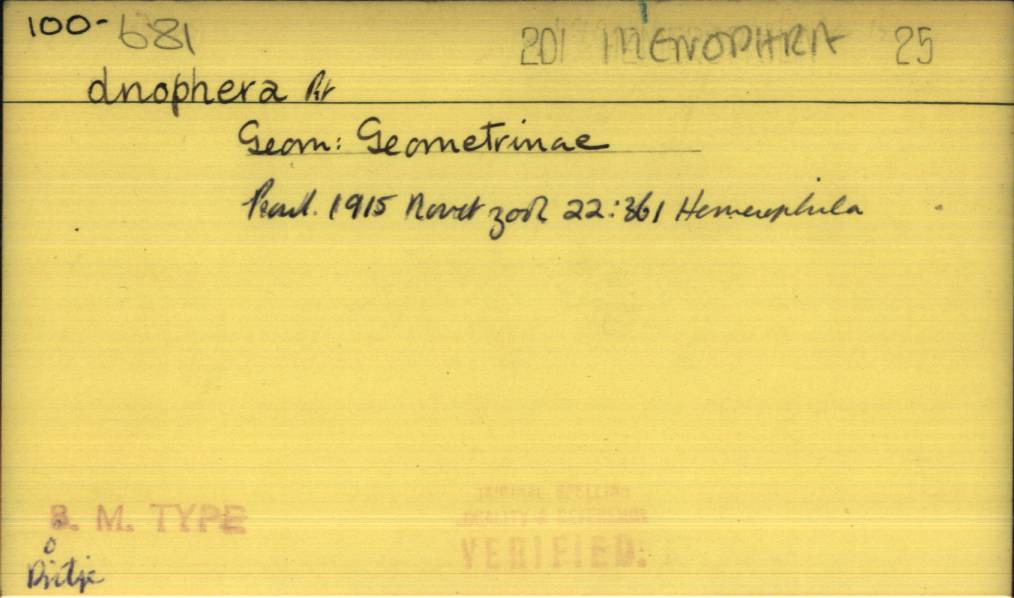 100-681 201 MENOPHRA 25
dnophera Prt
Geom: Geometrinae
Prout. 1915 Novit zool 22:361 Hemerophila
B. M. TYPE
ORIGINAL SPELLING
LOCALITY & REFERENCE
VERIFIED.